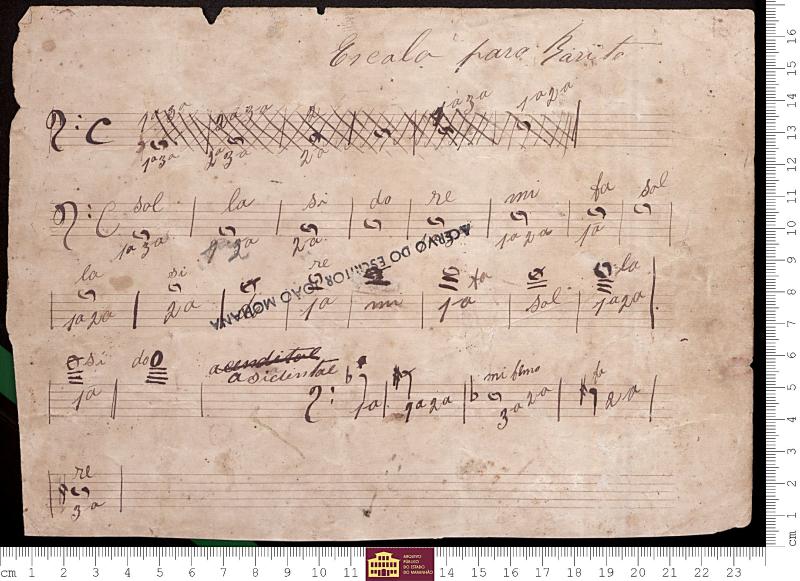 Escala para Barito
1a 3a 2a 3a 2a 1a 3a 1a 2a
1a 3a 2a 3a 2a
sol la si do re mi fa sol
1a 3a 2a 1a 2a 1a
la si re fa la
1a 2a 2a 1a mi 1a sol 1a 2a
ACERVO DO ESCRITOR JOÃO MOHANA
si do acendital
1a asidental
1a 1a 2a mi bmo 3a 2a fa 2a
re
3a
ARQUIVO
PÚBLICO
DO ESTADO
DO MARANHÃO
cm 1 2 3 4 5 6 7 8 9 10 11 14 15 16 17 18 19 20 21 22 23
cm 1 2 3 4 5 6 7 8 9 10 11 12 13 14 15 16